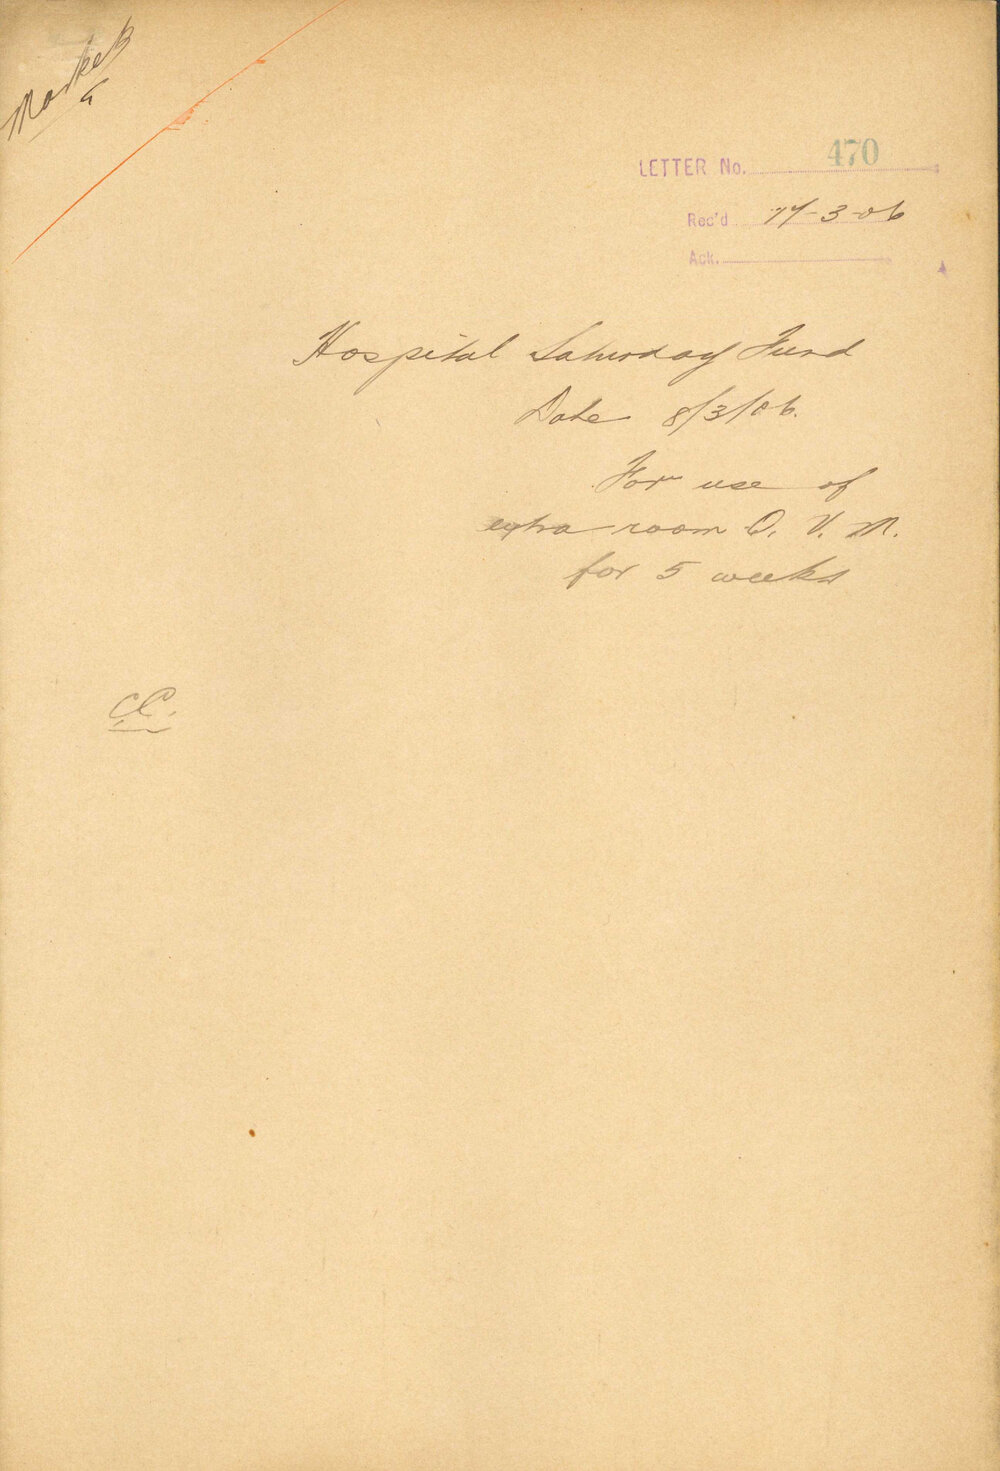 Market
LETTER No. 470
Rec'd 14-3-06
Ack.
Hospital Saturday Fund
Date 8/3/06.
For use of
extra room Q. V. M.
for 5 weeks
CC.